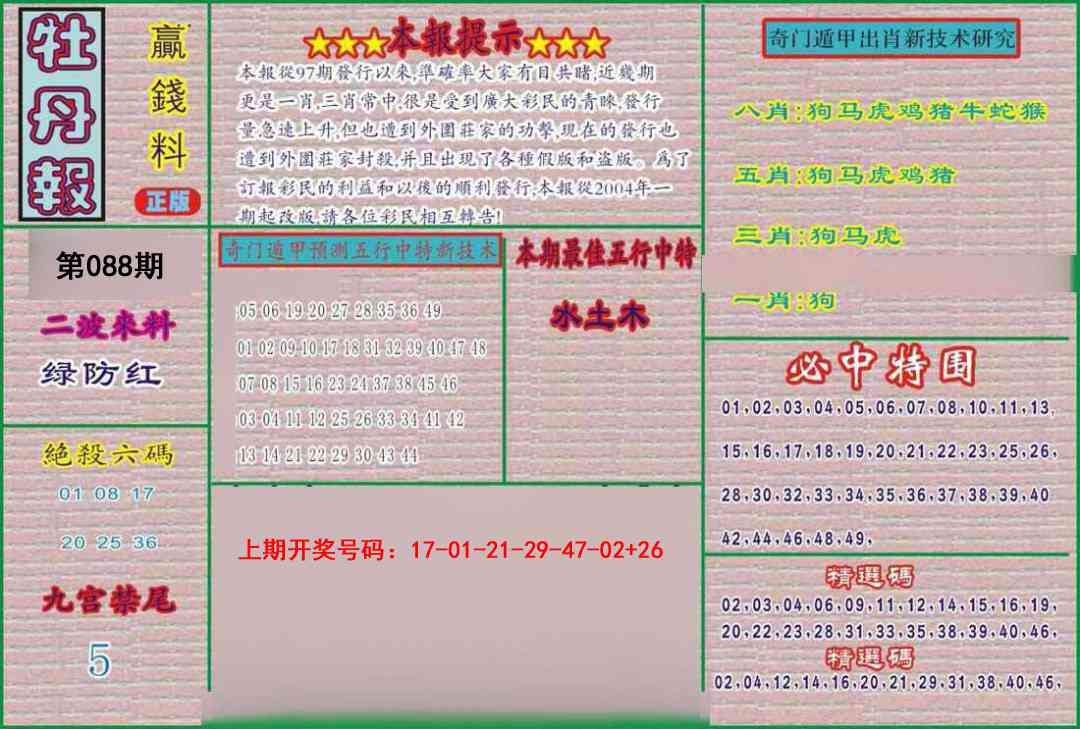 牡丹報
贏錢料
正版
★★★本報提示★★★
本報從97期發行以來,準確率大家有目共睹,近幾期
更是一肖,三肖常中,很是受到廣大彩民的青睞,發行
量急速上升,但也遭到外圍莊家的功擊,現在的發行也
遭到外圍莊家封殺,并且出現了各種假版和盗版。爲了
訂報彩民的利益和以後的順利發行,本報從2004年一
期起改版,請各位彩民相互轉告!
奇门遁甲出肖新技术研究
八肖:狗马虎鸡猪牛蛇猴
五肖:狗马虎鸡猪
三肖:狗马虎
一肖:狗
第088期
二波來料
绿防红
奇门遁甲预测五行中特新技术
05 06 19 20 27 28 35 36 49
01 02 09 10 17 18 31 32 39 40 47 48
07 08 15 16 23 24 37 38 45 46
03 04 11 12 25 26 33 34 41 42
13 14 21 22 29 30 43 44
本期最佳五行中特
水土木
必中特围
01,02,03,04,05,06,07,08,10,11,13,
15,16,17,18,19,20,21,22,23,25,26,
28,30,32,33,34,35,36,37,38,39,40
42,44,46,48,49,
絕殺六碼
01 08 17
20 25 36
九宫禁尾
5
上期开奖号码：17-01-21-29-47-02+26
精選碼
02,03,04,06,09,11,12,14,15,16,19,
20,22,23,28,31,33,35,38,39,40,46,
精選碼
02,04,12,14,16,20,21,29,31,38,40,46,